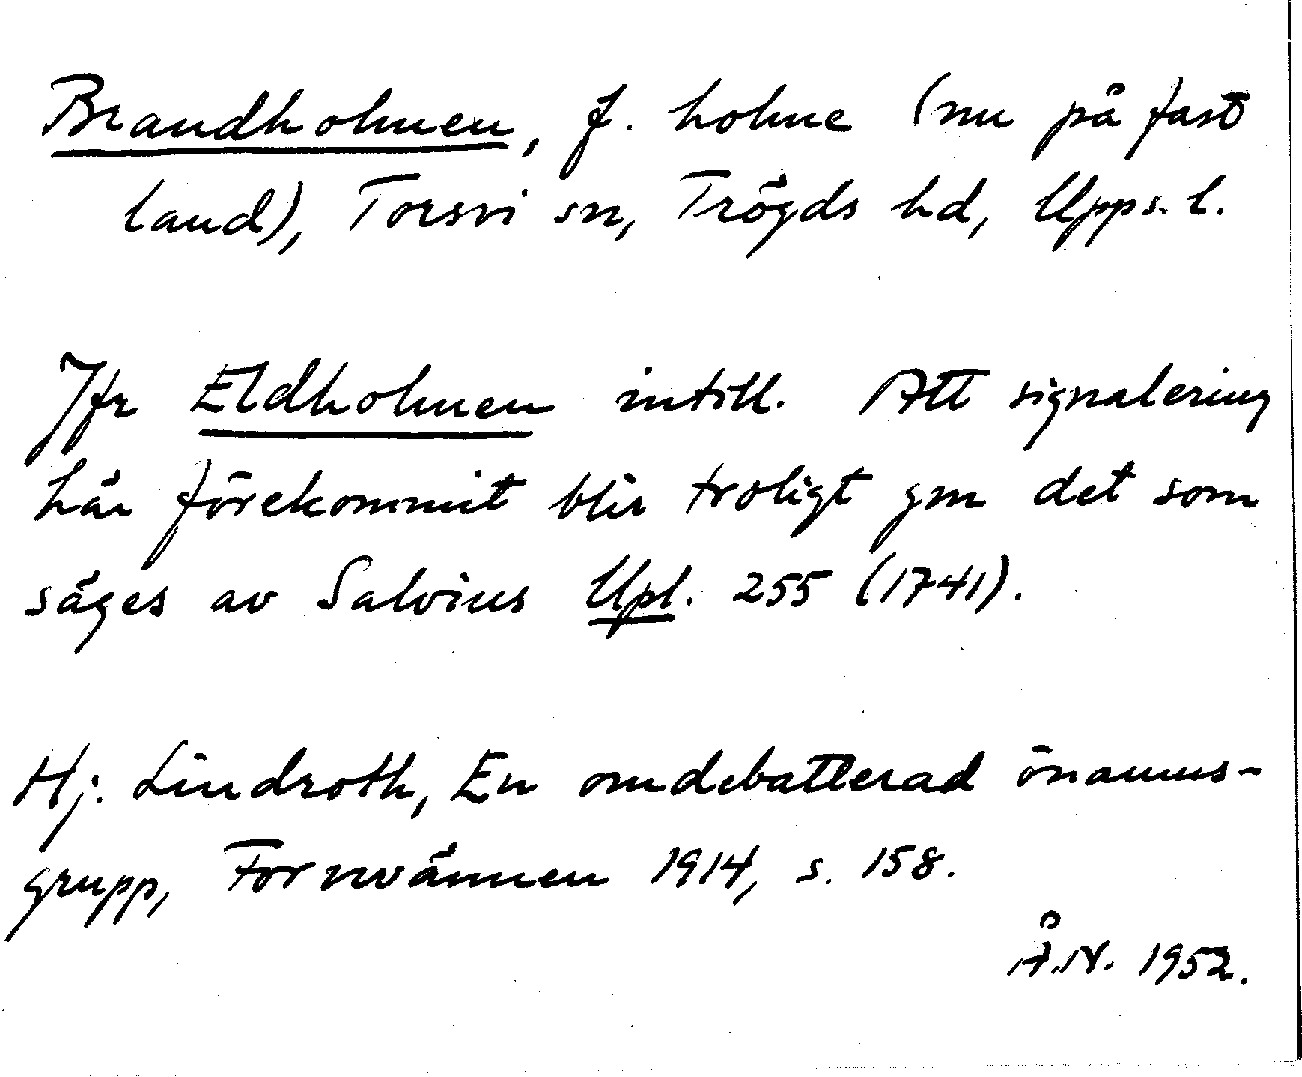 Brandholmen, f. holme (nu på fast
land), Torsvi sn, Trögds hd, Upps. l.
Jfr Eldholmen intill. Att signalering
här förekommit blir troligt gm det som
säges av Salvius Upl. 255 (1741).
Hj. Lindroth, En omdebatterad önamns-
grupp, Fornvännen 1914, s. 158.
Å.N. 1952.